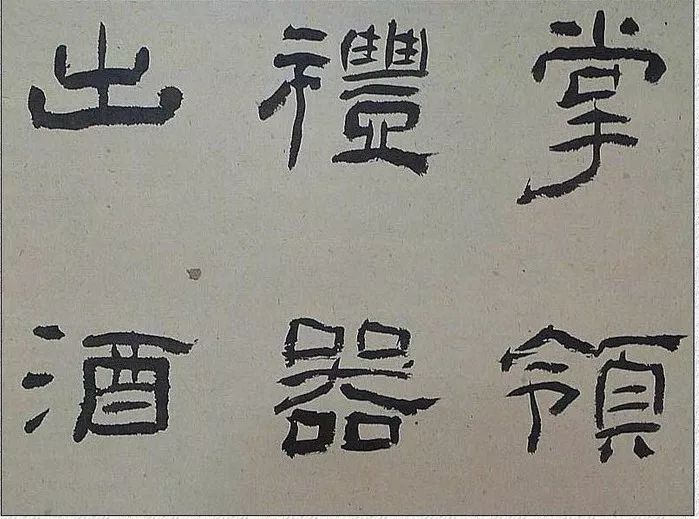 掌領
禮器
出酒